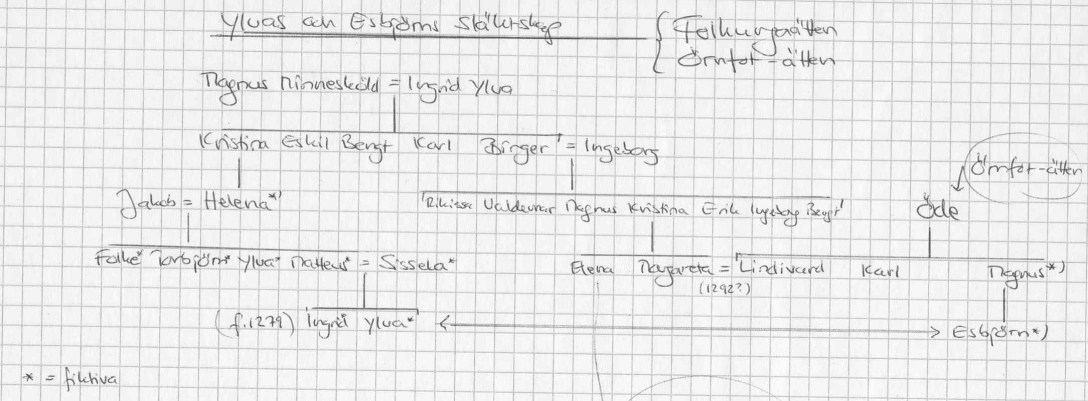 Ylvas och Esbjörns släktskap
Folkungaätten
Örnfot-ätten
Magnus Minnesköld = Ingrid Ylva
Kristina Eskil Bengt Karl Birger = Ingeborg
Örnfot-ätten
Jakob = Helena*
Rikissa Valdemar Magnus Kristina Erik Ingeborg Bengt
Öde
Folke* Torbjörn* Ylva* Matteus* = Sissela*
Elena Margareta = Lindivard Karl Magnus*)
(1292?)
(f.1279) Ingrid Ylva*
Esbjörn*)
* = fiktiva